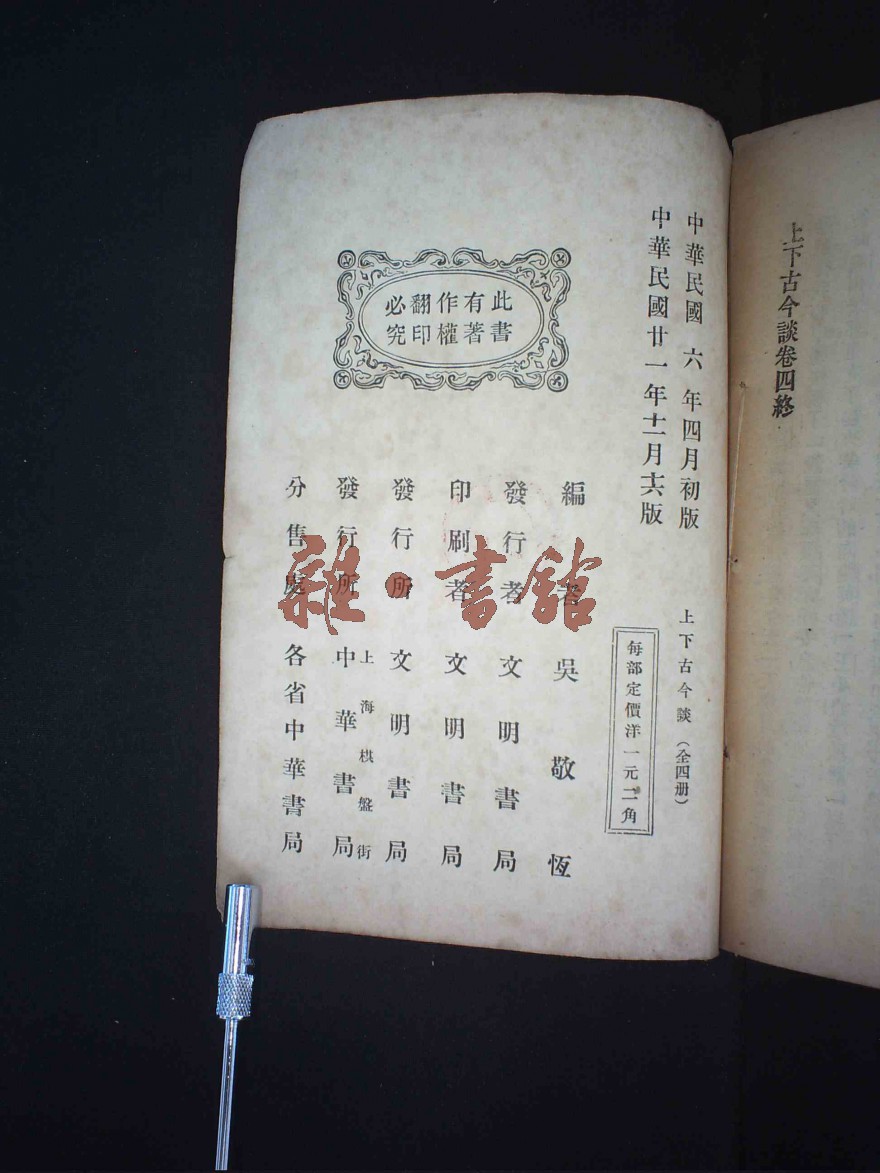 上下古今談卷四終
中華民國六年四月初版
中華民國廿一年十二月十六版
此書
有著
作權
翻印
必究
上下古今談（全四册）
每部定價洋一元二角
編者 吳敬恆
發行者 文明書局
印刷者 文明書局
發行所 文明書局
上海棋盤街
發行所 中華書局
分售處 各省中華書局
雜·書館